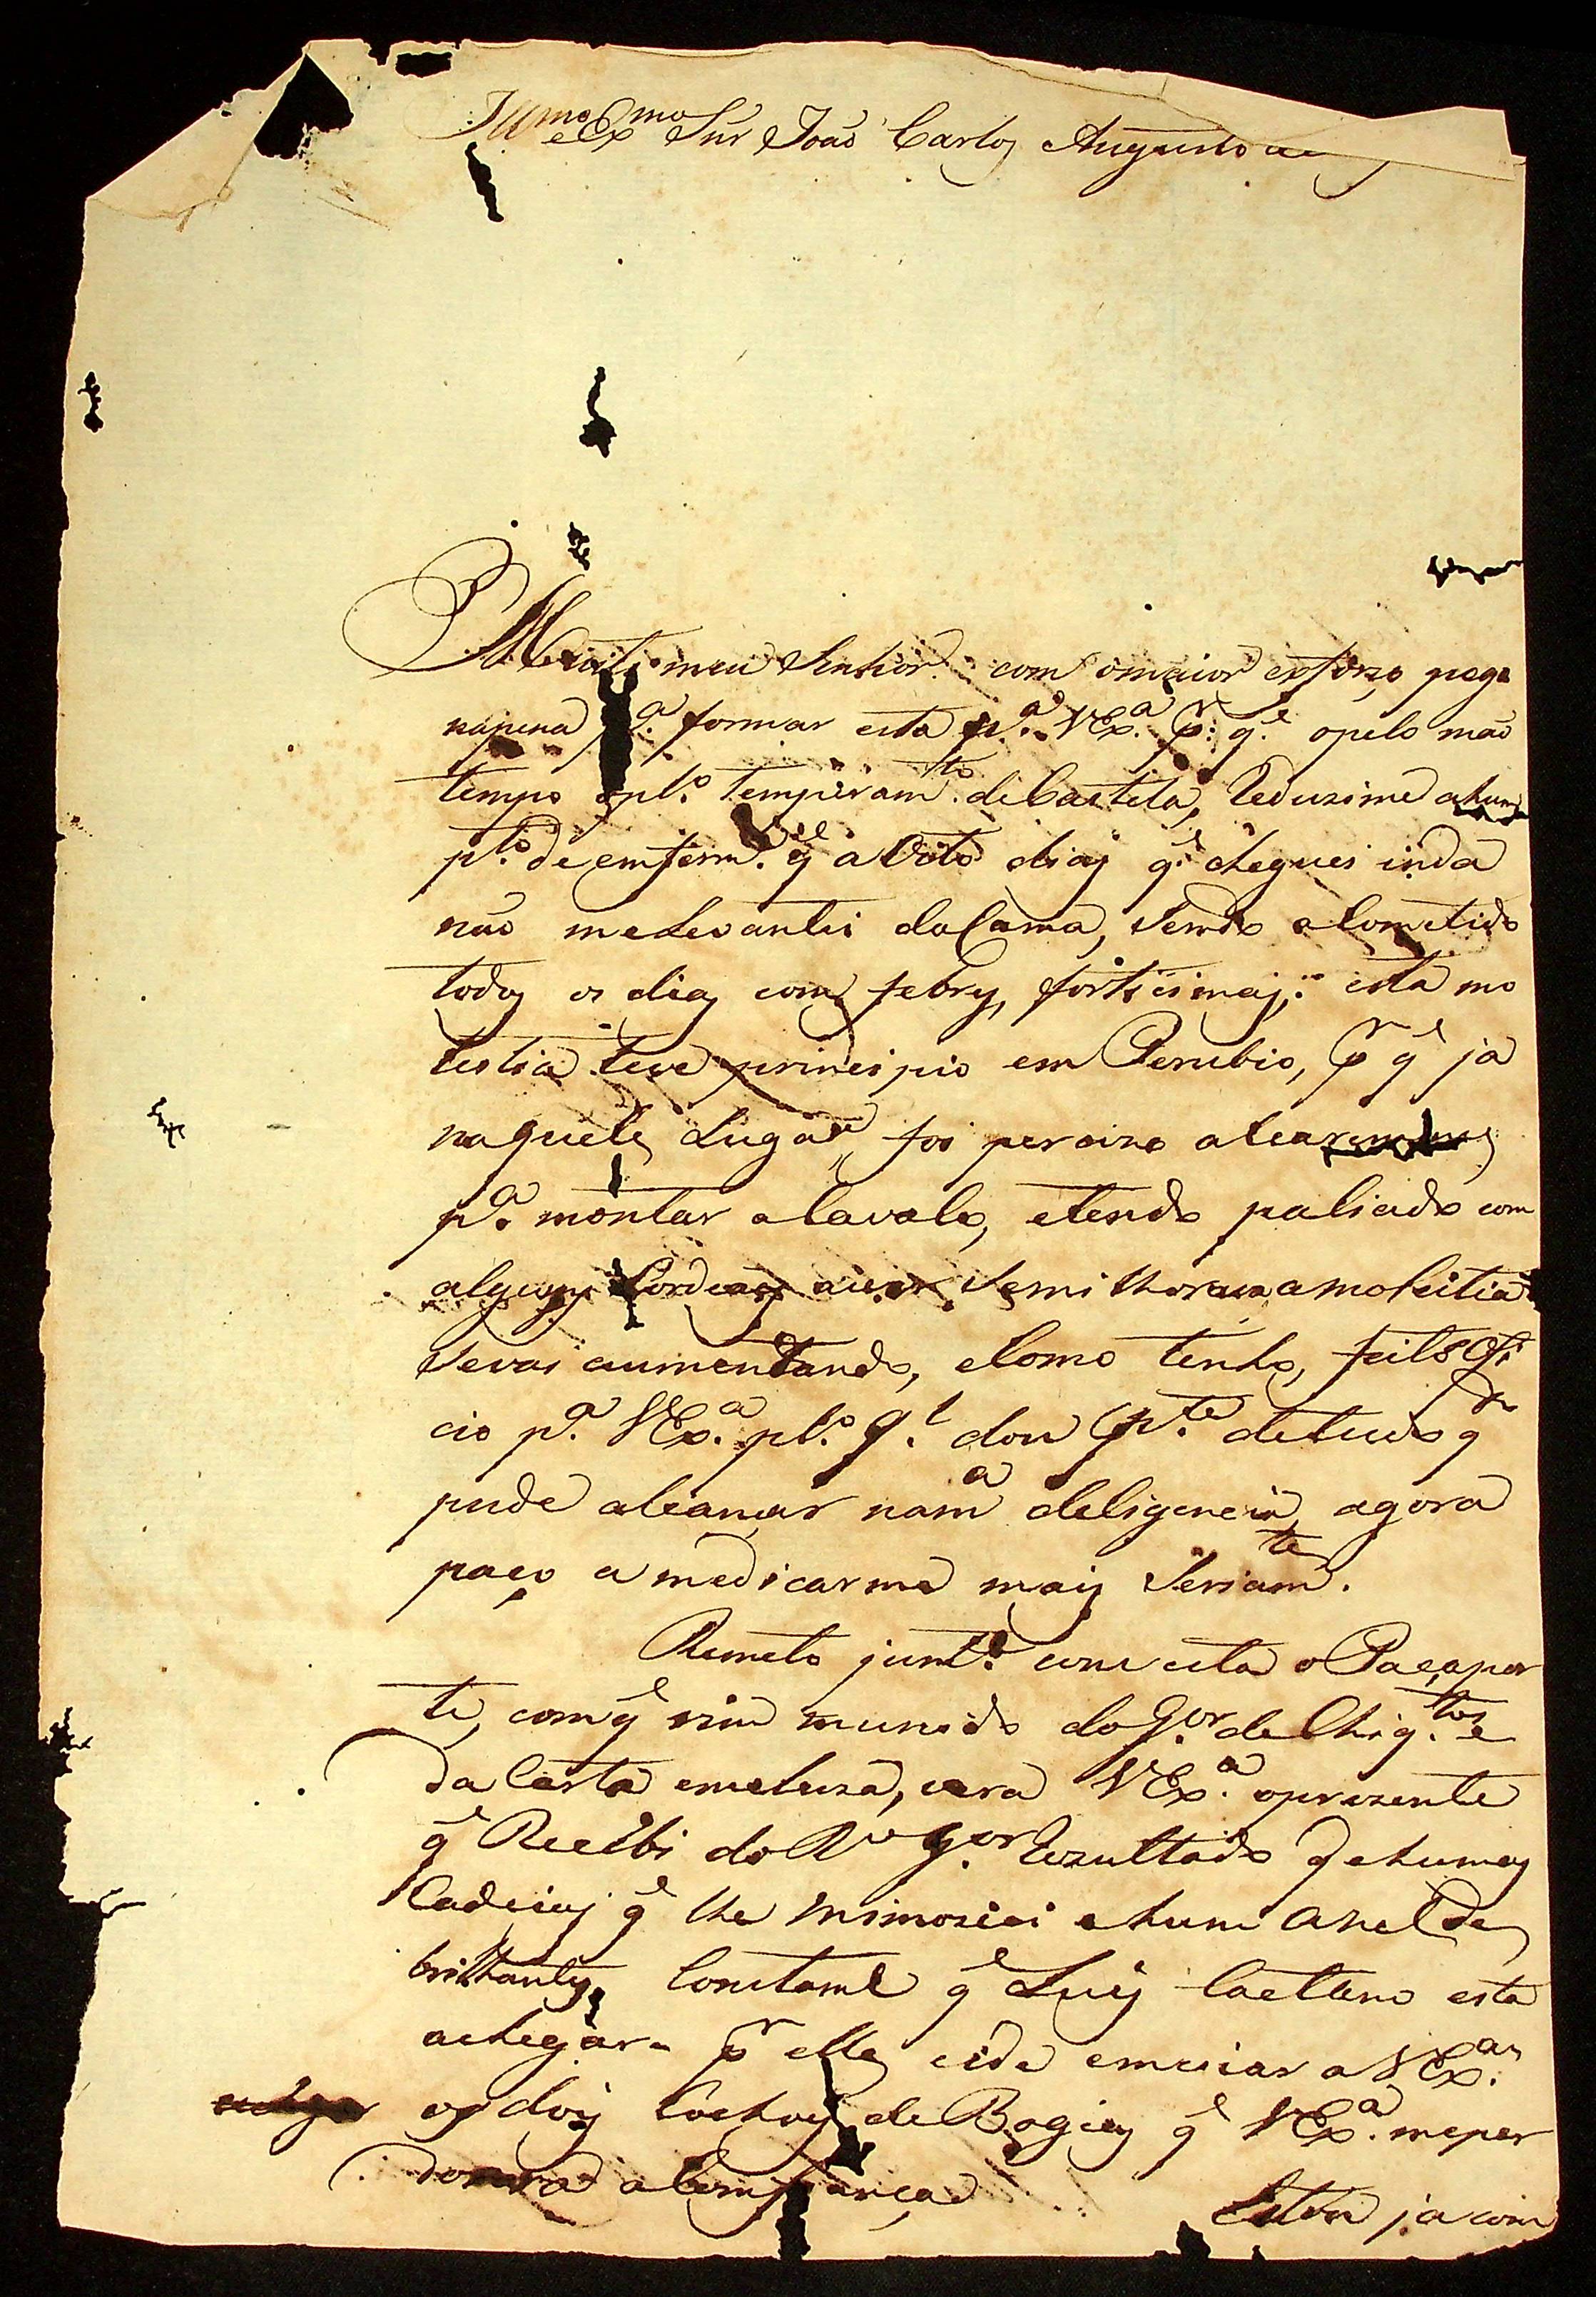 Illmo e Exmo Snr João Carlos Augusto
Muito meu Senhor com omaior esforço pego
napena pa. formar esta pa. VExa. pr. qe. opelo mao
tempo eplo. temperamto. deCastela, Reduzime ahum
pto. de emferm. qe a Oito dias qe. cheguei inda
não meLevantei daCama, sendo aCometido
todos os dias com febres, fortiçimas; esta mo
lestia teve principio em Perubio, pr qe ja
naquele Lugar, foi percizo
pa. montar aCavalo, etendo paliado com
Semilhorava amolestia
Sevai aumentando, eComo tenho, feito Ofi
cio pa. VExa. plo. ql. dou pte. detudo q
pude alcançar nama deligencia, agora
paço a medicarme mais Seriamte.
Remeto junto. com esta o Paçapor
te, comqe vim munido doGor. deChiqtos. e
daCarta emcluza, vera VExa. oprezente
qe Recebi do Gor Rezultado dehumas
Cadeias qe lhe mimoziei ehum Anel de
brilhantes, Constame qe Luis Caetano esta
achegar pr elle eide emviar a VExa.
os dois Cochos de Bogias qe VExa. meper
doara aComfiança
Estou jacom